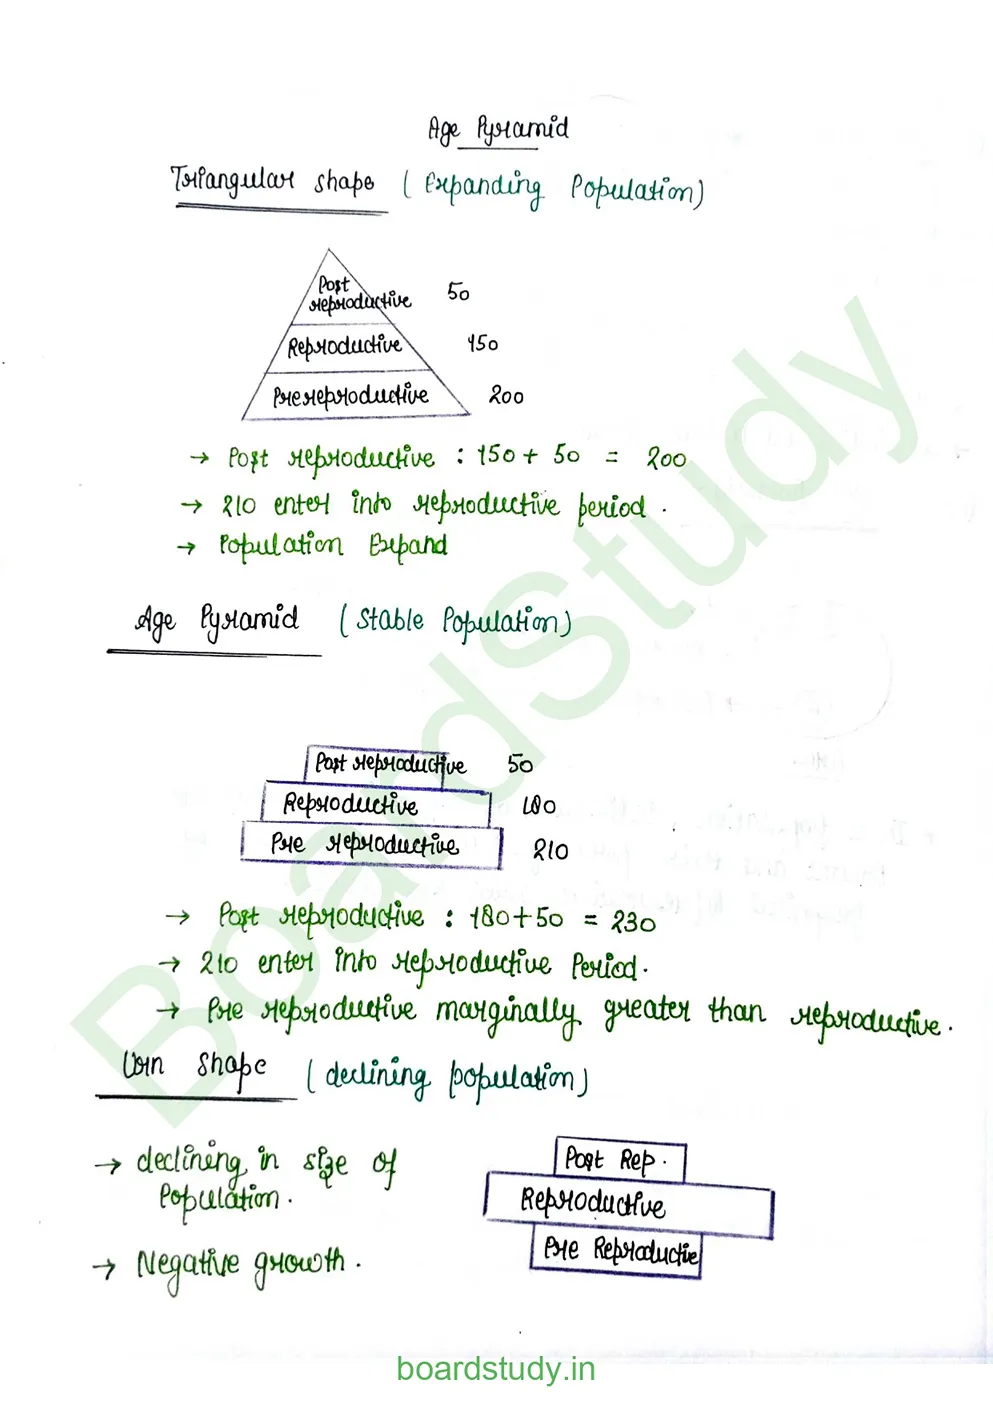 Age Pyramid
Triangular shape (Expanding Population)
Post
reproductive 50
Reproductive 150
Prereproductive 200
→ Post reproductive : 150 + 50 = 200
→ 210 enter into reproductive period.
→ Population Expand
Age Pyramid (Stable Population)
Post reproductive 50
Reproductive 180
Pre reproductive 210
→ Post reproductive : 180+50 = 230
→ 210 enter into reproductive Period.
→ Pre reproductive marginally greater than reproductive.
Urn Shape (declining population)
→ declining in size of
Population.
→ Negative growth.
Post Rep.
Reproductive
Pre Reproductive
BoardStudy
boardstudy.in